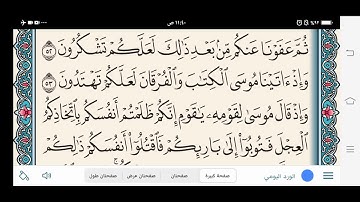 ١١:٤٠ ص
ثُمَّ عَفَوْنَا عَنكُم مِّنۢ بَعْدِ ذَٰلِكَ لَعَلَّكُمْ تَشْكُرُونَ ٥٢
وَإِذْ ءَاتَيْنَا مُوسَى ٱلْكِتَٰبَ وَٱلْفُرْقَانَ لَعَلَّكُمْ تَهْتَدُونَ ٥٣
وَإِذْ قَالَ مُوسَىٰ لِقَوْمِهِۦ يَٰقَوْمِ إِنَّكُمْ ظَلَمْتُمْ أَنفُسَكُم بِٱتِّخَاذِكُمُ
ٱلْعِجْلَ فَتُوبُوٓا۟ إِلَىٰ بَارِئِكُمْ فَٱقْتُلُوٓا۟ أَنفُسَكُمْ ذَٰلِكُمْ
الورد اليومي صفحة كبيرة صفحتان صفحتان عرض صفحتان طول